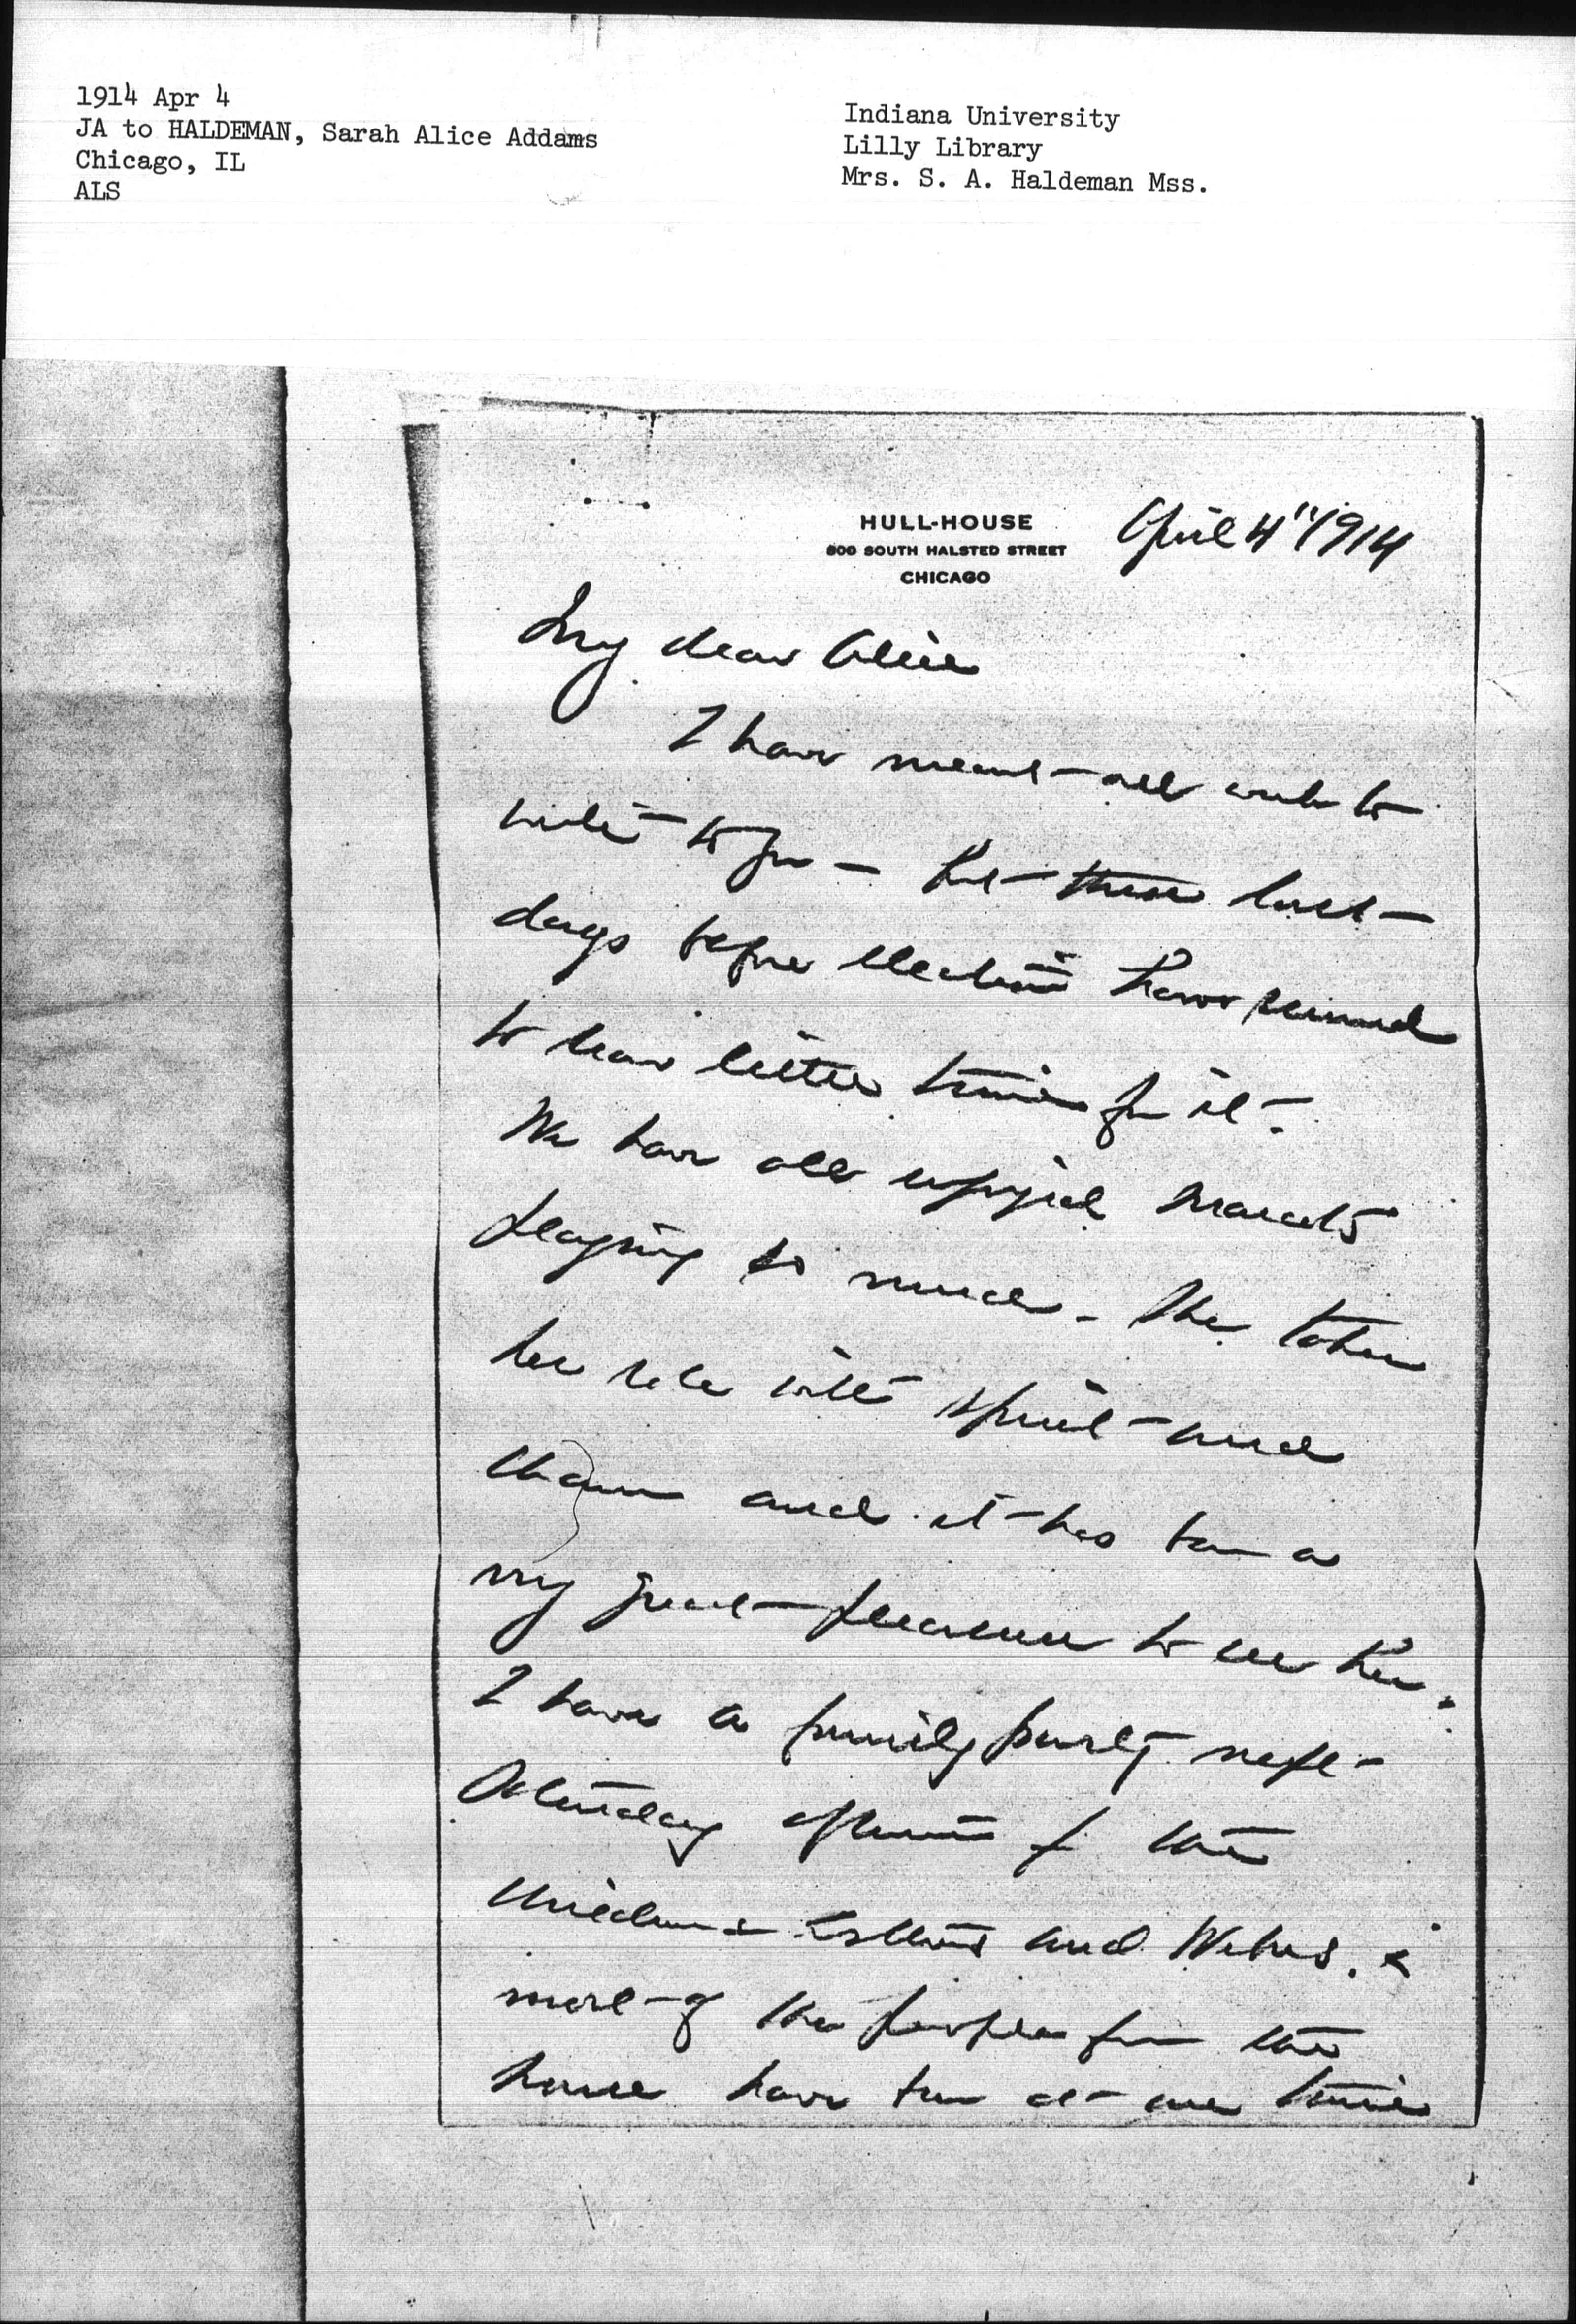 1914 Apr 4
JA to HALDEMAN, Sarah Alice Addams
Chicago, IL
ALS
Indiana University
Lilly Library
Mrs. S. A. Haldeman Mss.
HULL-HOUSE
800 SOUTH HALSTED STREET
CHICAGO
April 4" 1914
My dear Alice
I have meant all week to
write to you — but these last
days before election have seemed
to leave little time for it.
We have all enjoyed Marcet's
playing so much. She takes
her role with spirit and
charm and it has been a
very great pleasure to see her.
I have a family party next
Saturday afternoon for the
children & Esther and Weber. &
most of the people from the
house have been at one time